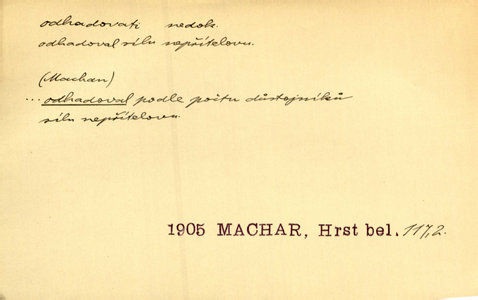 odhadovati nedok.
odhadoval sílu nepřítelovu.
(Machar)
... odhadoval podle počtu důstojníků
sílu nepřítelovu.
1905 MACHAR, Hrst bel. 117,2.